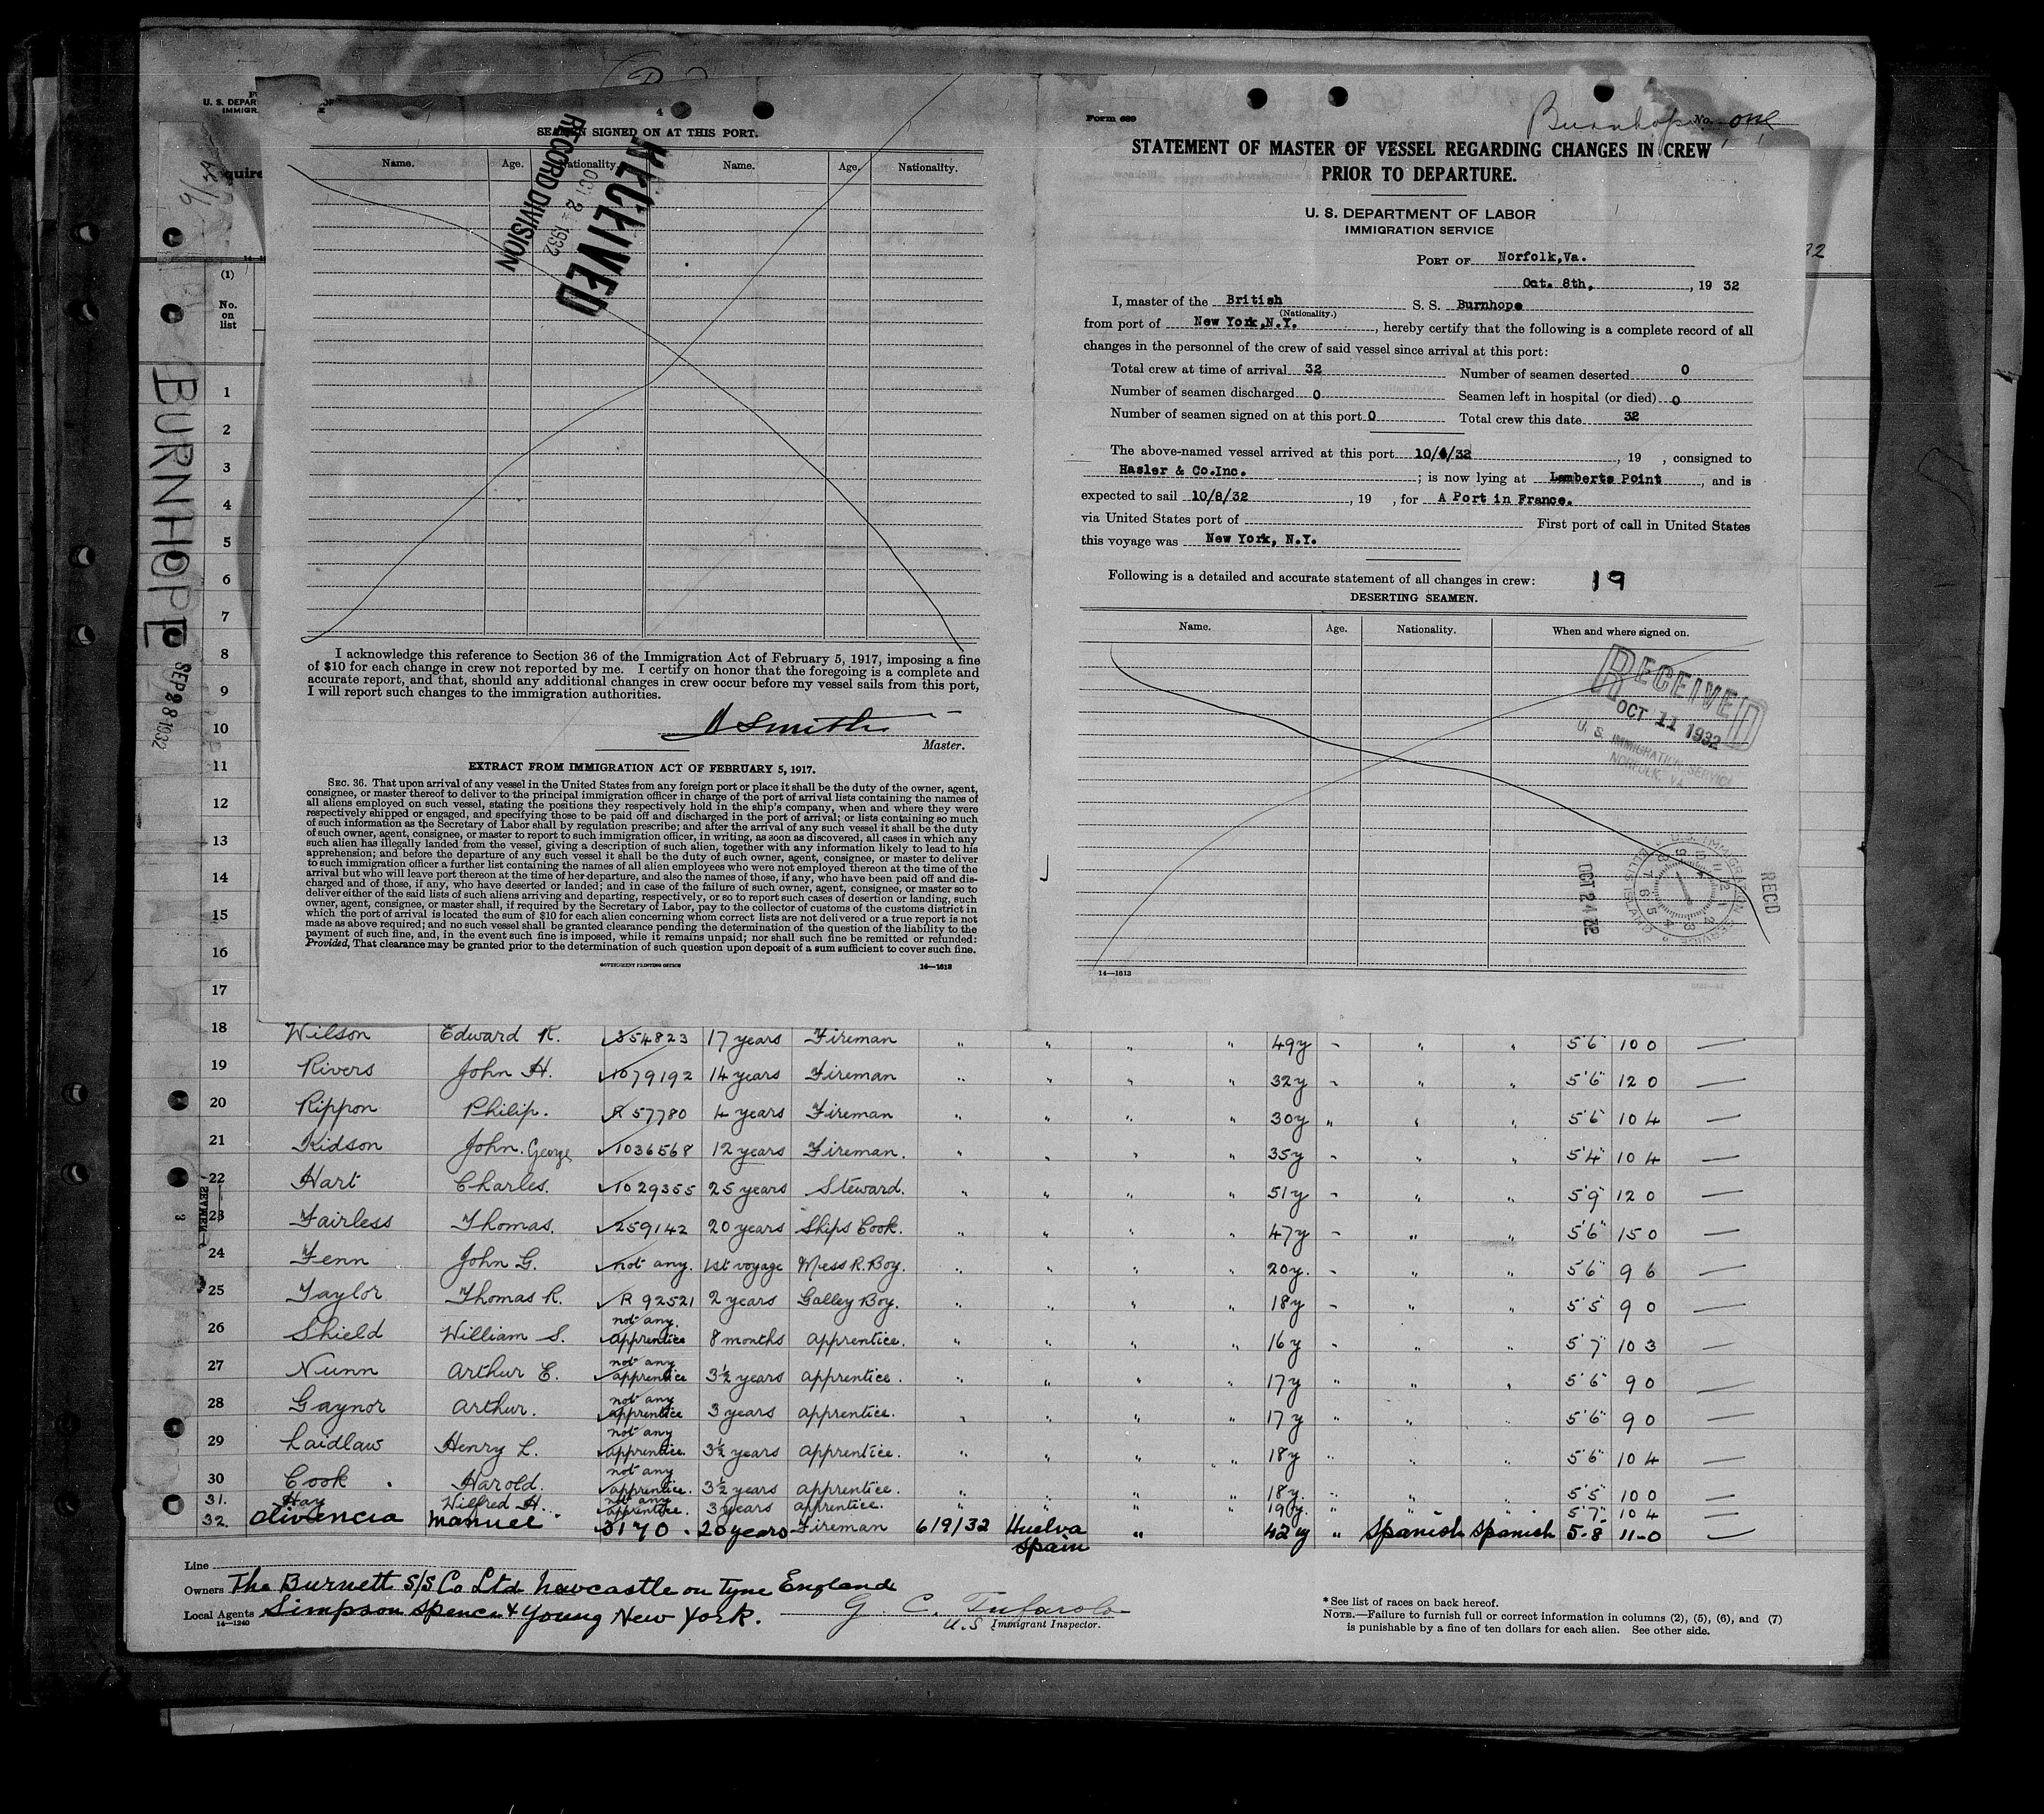 U. S. DEPAR
IMMIGR
quire
14-1
(1)
No.
on
list
BURNHOPE
SEP 28 1932
4
SEAMEN SIGNED ON AT THIS PORT.
Name. Age. Nationality. Name. Age. Nationality.
RECEIVED
OCT 2 - 1932
RECORD DIVISION
I acknowledge this reference to Section 36 of the Immigration Act of February 5, 1917, imposing a fine
of $10 for each change in crew not reported by me. I certify on honor that the foregoing is a complete and
accurate report, and that, should any additional changes in crew occur before my vessel sails from this port,
I will report such changes to the immigration authorities.
Smith
Master.
EXTRACT FROM IMMIGRATION ACT OF FEBRUARY 5, 1917.
SEC. 36. That upon arrival of any vessel in the United States from any foreign port or place it shall be the duty of the owner, agent,
consignee, or master thereof to deliver to the principal immigration officer in charge of the port of arrival lists containing the names of
all aliens employed on such vessel, stating the positions they respectively hold in the ship's company, when and where they were
respectively shipped or engaged, and specifying those to be paid off and discharged in the port of arrival; or lists containing so much
of such information as the Secretary of Labor shall by regulation prescribe; and after the arrival of any such vessel it shall be the duty
of such owner, agent, consignee, or master to report to such immigration officer, in writing, as soon as discovered, all cases in which any
such alien has illegally landed from the vessel, giving a description of such alien, together with any information likely to lead to his
apprehension; and before the departure of any such vessel it shall be the duty of such owner, agent, consignee, or master to deliver
to such immigration officer a further list containing the names of all alien employees who were not employed thereon at the time of the
arrival but who will leave port thereon at the time of her departure, and also the names of those, if any, who have been paid off and dis-
charged and of those, if any, who have deserted or landed; and in case of the failure of such owner, agent, consignee, or master so to
deliver either of the said lists of such aliens arriving and departing, respectively, or so to report such cases of desertion or landing, such
owner, agent, consignee, or master shall, if required by the Secretary of Labor, pay to the collector of customs of the customs district in
which the port of arrival is located the sum of $10 for each alien concerning whom correct lists are not delivered or a true report is not
made as above required; and no such vessel shall be granted clearance pending the determination of the question of the liability to the
payment of such fine, and, in the event such fine is imposed, while it remains unpaid; nor shall such fine be remitted or refunded:
Provided, That clearance may be granted prior to the determination of such question upon deposit of a sum sufficient to cover such fine.
GOVERNMENT PRINTING OFFICE 14—1613
Form 689
Burnhope No. one
STATEMENT OF MASTER OF VESSEL REGARDING CHANGES IN CREW
PRIOR TO DEPARTURE.
U. S. DEPARTMENT OF LABOR
IMMIGRATION SERVICE
PORT OF Norfolk,Va.
Oct. 8th, , 19 32
I, master of the British S. S. Burnhope
(Nationality.)
from port of New York,N.Y. , hereby certify that the following is a complete record of all
changes in the personnel of the crew of said vessel since arrival at this port:
Total crew at time of arrival 32 Number of seamen deserted 0
Number of seamen discharged 0 Seamen left in hospital (or died) 0
Number of seamen signed on at this port 0 Total crew this date 32
The above-named vessel arrived at this port 10/4/32 , 19 , consigned to
Hasler & Co.Inc. ; is now lying at Lamberts Point , and is
expected to sail 10/8/32 , 19 , for A Port in France.
via United States port of First port of call in United States
this voyage was New York, N.Y.
Following is a detailed and accurate statement of all changes in crew: 19
DESERTING SEAMEN.
Name. Age. Nationality. When and where signed on.
RECEIVED
OCT 11 1932
U. S. IMMIGRATION SERVICE
NORFOLK, VA.
OCT 24 '32
REC'D
14—1613
32
1
2
3
4
5
6
7
8
9
10
11
12
13
14
15
16
17
18 Wilson Edward R. 354823 17 years Fireman " " " " 49y " " " 5'6" 100 —
19 Rivers John H. 1079192 14 years Fireman " " " " 32y " " " 5'6" 120 —
20 Rippon Philip. R 57780 4 years Fireman " " " " 30y " " " 5'6" 104 —
21 Kidson John. George 1036568 12 years Fireman. " " " " 35y " " " 5'4" 104 —
22 Hart Charles. 1029355 25 years Steward. " " " " 51y " " " 5'9" 120 —
23 Fairless Thomas. 259142 20 years Ships Cook. " " " " 47y " " " 5'6" 150 —
24 Fenn John G. not any. 1st voyage Mess R. Boy. " " " " 20y. " " " 5'6" 96 —
25 Taylor Thomas R. R 92521 2 years Galley Boy. " " " " 18y " " " 5'5" 90 —
26 Shield William S. not any. apprentice 8 months apprentice. " " " " 16y " " " 5'7" 103 —
27 Nunn Arthur E. not any apprentice 3½ years apprentice. " " " " 17y " " " 5'6" 90 —
28 Gaynor Arthur. not any apprentice 3 years apprentice. " " " " 17y " " " 5'6" 90 —
29 Laidlaw Henry L. not any apprentice. 3½ years apprentice. " " " " 18y " " " 5'6" 104 —
30 Cook Harold. not any apprentice. 3½ years apprentice. " " " " 18y. " " " 5'5" 100 —
31. Hay Wilfred H. not any apprentice. 3 years apprentice. " " " " 19y. " " " 5'7" 104 —
32. Olivencia Manuel 3170. 20 years Fireman 6/9/32 Huelva Spain " 42y " Spanish Spanish 5-8 11-0 —
Line
Owners The Burnett S/S Co Ltd Newcastle on Tyne England
Local Agents Simpson Spence & Young New York.
14—1240
G. C. Tufarolo
U.S Immigrant Inspector.
* See list of races on back hereof.
NOTE.—Failure to furnish full or correct information in columns (2), (5), (6), and (7)
is punishable by a fine of ten dollars for each alien. See other side.